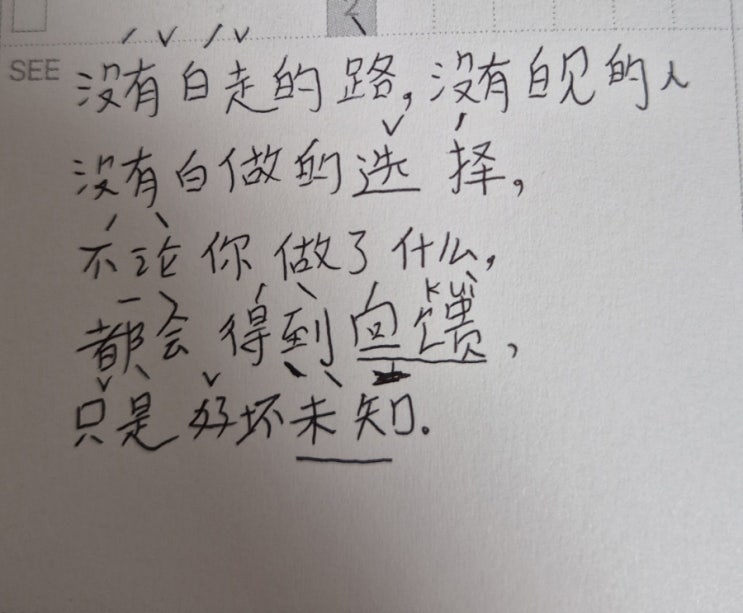 2
SEE 没有白走的路,没有白见的人
没有白做的选择,
不论你做了什么,
kuì
都会得到回馈,
只是好坏未知.